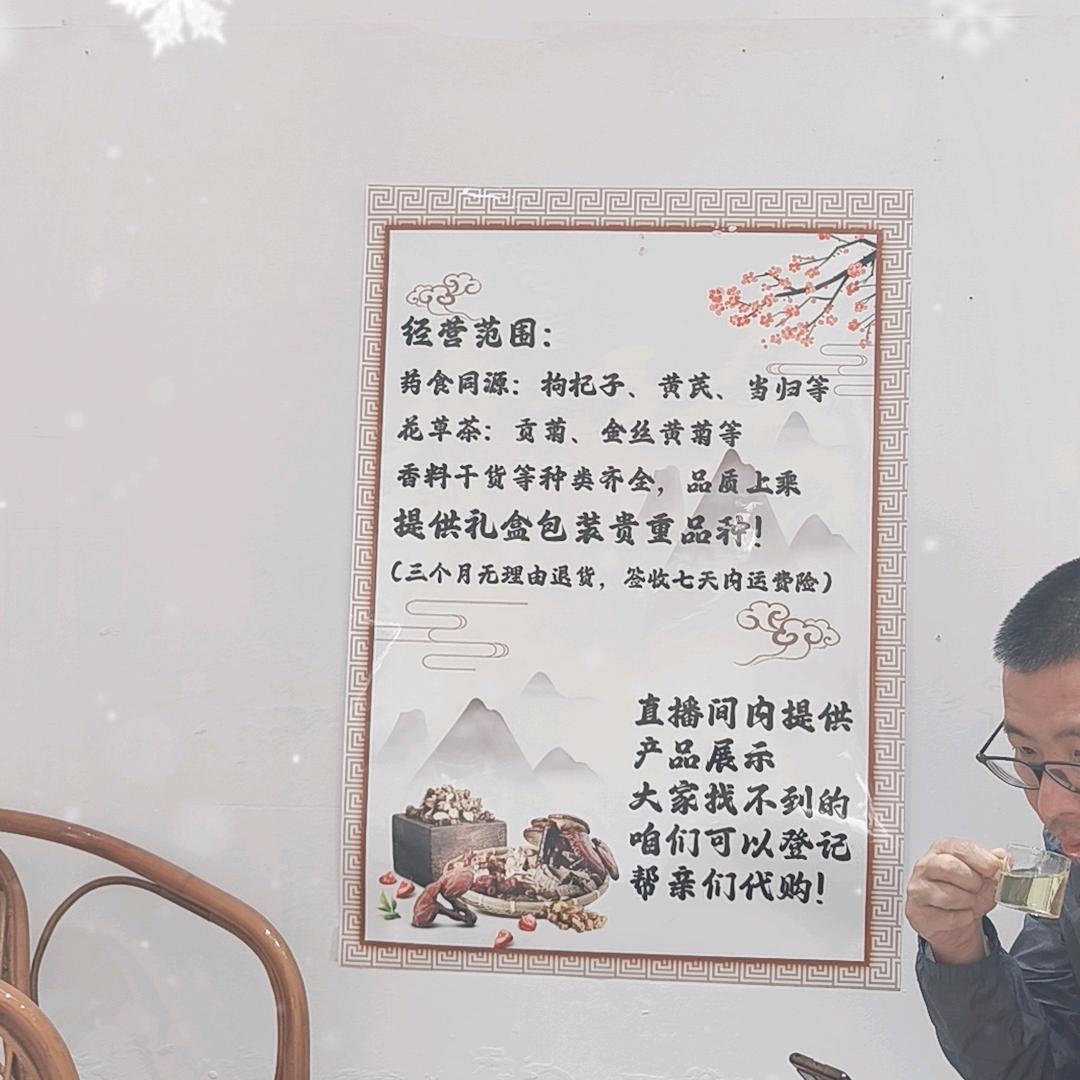 经营范围：
药食同源：枸杞子、黄芪、当归等
花草茶：贡菊、金丝黄菊等
香料干货等种类齐全，品质上乘
提供礼盒包装贵重品种！
（三个月无理由退货，签收七天内运费险）
直播间内提供
产品展示
大家找不到的
咱们可以登记
帮亲们代购！